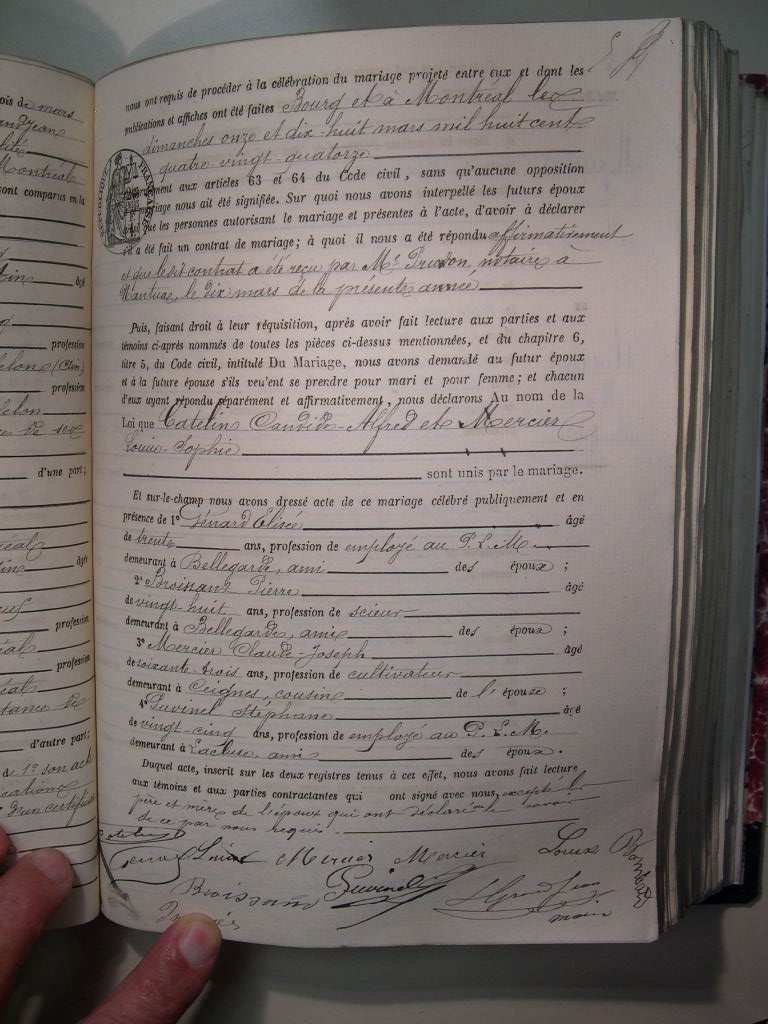 ois de mars
andjean
alité
Montréal
sont comparus en la
tin âgé
profession
elon (Ain)
profession
delon
ce de ses
d'une part;
éal
tin âgé
profession
éal
profession
éal
d'autre part;
1º son acte
D'un certificat
nous ont requis de procéder à la célébration du mariage projeté entre eux et dont les
publications et affiches ont été faites Bourg et à Montréal les
dimanches onze et dix-huit mars mil huit cent
quatre-vingt-quatorze
RÉPUBLIQUE FRANÇAISE
aux articles 63 et 64 du Code civil, sans qu'aucune opposition
mariage nous ait été signifiée. Sur quoi nous avons interpellé les futurs époux
que les personnes autorisant le mariage et présentes à l'acte, d'avoir à déclarer
a été fait un contrat de mariage; à quoi il nous a été répondu affirmativement
et que le dit contrat a été reçu par Me notaire à
Nantua, le dix mars de la présente année
Puis, faisant droit à leur réquisition, après avoir fait lecture aux parties et aux
témoins ci-après nommés de toutes les pièces ci-dessus mentionnées, et du chapitre 6,
titre 5, du Code civil, intitulé Du Mariage, nous avons demandé au futur époux
et à la future épouse s'ils veulent se prendre pour mari et pour femme; et chacun
d'eux ayant répondu séparément et affirmativement, nous déclarons Au nom de la
Loi que Catelin Candide-Alfred et Mercier
Louise-Sophie
sont unis par le mariage.
Et sur-le-champ nous avons dressé acte de ce mariage célébré publiquement et en
présence de 1º Génard Elisée âgé
de trente ans, profession de employé au P. L. M.
demeurant à Bellegarde, ami des époux;
2º Broissant Pierre âgé
de vingt-huit ans, profession de scieur
demeurant à Bellegarde, ami des époux;
3º Mercier Claude-Joseph âgé
de soixante-trois ans, profession de cultivateur
demeurant à Ceignes, cousin de l'épouse;
4º Stéphane âgé
de vingt-cinq ans, profession de employé au P. L. M.
demeurant à ami des époux.
Duquel acte, inscrit sur les deux registres tenus à cet effet, nous avons fait lecture
aux témoins et aux parties contractantes qui ont signé avec nous, excepté les
père et mère de l'époux qui ont déclaré ne savoir
de ce par nous requis.
Mercier Mercier Louise
Broissant
maire